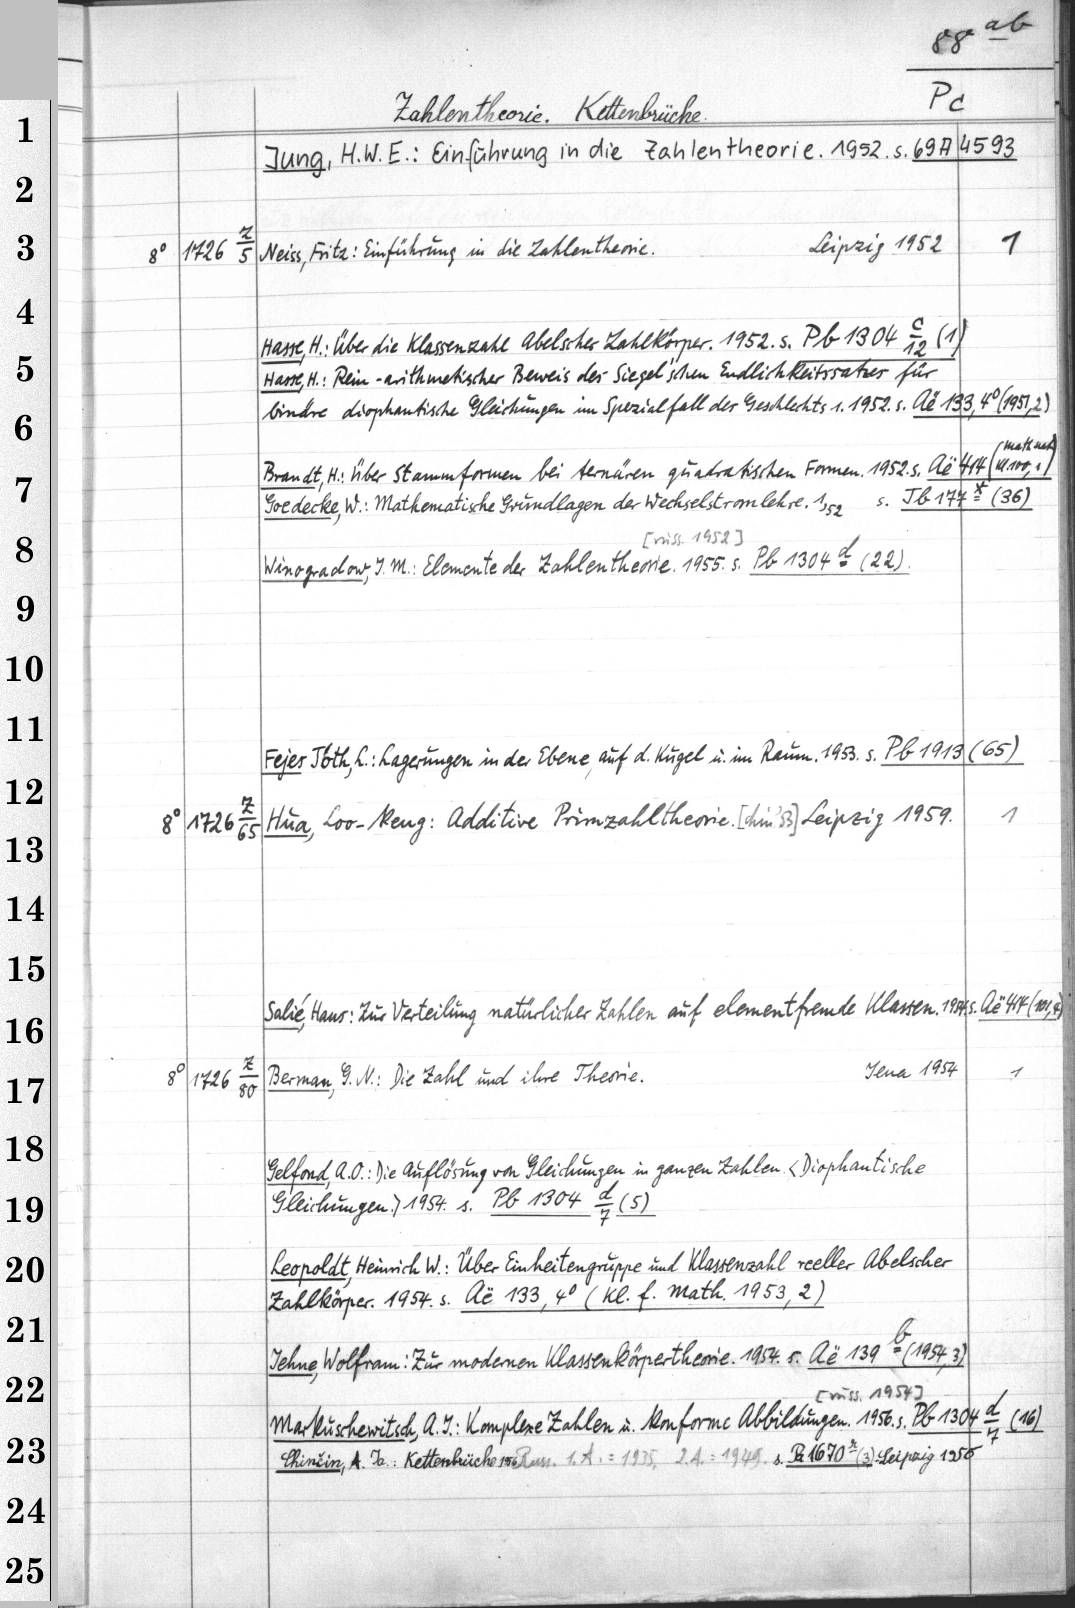 88 ab
Pc
Zahlentheorie. Kettenbrüche.
1
Jung, H.W.E.: Einführung in die Zahlentheorie. 1952. s. 69A 4593
2
3
8° 1726 z/5 Neiss, Fritz: Einführung in die Zahlentheorie. Leipzig 1952 1
4
Hasse, H.: Über die Klassenzahl Abelscher Zahlkörper. 1952. s. Pb 1304 c/12 (1)
5
Hasse, H.: Rein-arithmetischer Beweis des Siegel'schen Endlichkeitssatzes für
binäre diophantische Gleichungen im Spezialfall des Geschlechts 1. 1952. s. Aë 133, 4° (1951,2)
6
Brandt, H.: Über Stammformen bei ternären quadratischen Formen. 1952. s. Aë 414 (math nat Kl. 100, 1)
7
Goedecke, W.: Mathematische Grundlagen der Wechselstromlehre. 1, 52 s. Jb 177 x (36)
[russ. 1952]
8
Winogradow, I. M.: Elemente der Zahlentheorie. 1955. s. Pb 1304 d (22).
9
10
11
Fejes Tóth, L.: Lagerungen in der Ebene, auf d. Kugel u. im Raum. 1953. s. Pb 1913 (65)
12
8° 1726 z/65 Hua, Loo-Keng: Additive Primzahltheorie. [chin' 53] Leipzig 1959. 1
13
14
15
Salié, Hans: Zur Verteilung natürlicher Zahlen auf elementfremde Klassen. 1954. s. Aë 414 (101, 4)
16
8° 1726 z/80 Berman, G. N.: Die Zahl und ihre Theorie. Jena 1954 1
17
18
Gelfond, A.O.: Die Auflösung von Gleichungen in ganzen Zahlen. <Diophantische
19
Gleichungen.> 1954. s. Pb 1304 d/7 (5)
20
Leopoldt, Heinrich W.: Über Einheitengruppe und Klassenzahl reeller Abelscher
Zahlkörper. 1954. s. Aë 133, 4° (Kl. f. Math. 1953, 2)
21
Jehne, Wolfram: Zur modernen Klassenkörpertheorie. 1954. s. Aë 139 b (1954,3)
22
[russ. 1954]
Markuschewitsch, A. I.: Komplexe Zahlen u. konforme Abbildungen. 1956. s. Pb 1304 d/7 (16)
23
Chinčin, A. Ja.: Kettenbrüche 1956 Russ. 1. A. = 1935, 2. A. = 1949. s. Pa 1670 x (3). Leipzig 1956
24
25